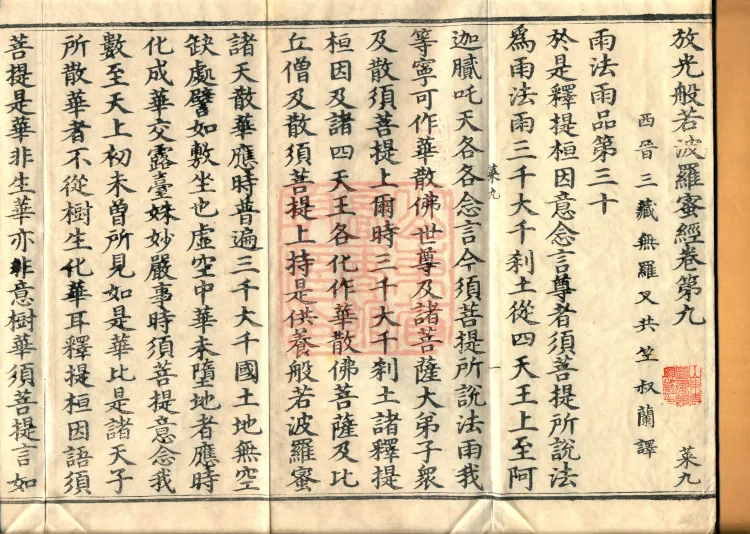 放光般若波羅蜜經卷第九 菜九
西晉三藏無羅叉共竺叔蘭譯
雨法雨品第三十
於是釋提桓因意念言尊者須菩提所說法
為雨法雨三千大千剎土從四天王上至阿
菜九 一
迦膩吒天各各念言今須菩提所說法雨我
等寧可作華散佛世尊及諸菩薩大弟子眾
及散須菩提上爾時三千大千剎土諸釋提
桓因及諸四天王各化作華散佛菩薩及比
丘僧及散須菩提上持是供養般若波羅蜜
諸天散華應時普遍三千大千國土地無空
缺處譬如敷坐也虛空中華未墮地者應時
化成華交露臺姝妙嚴事時須菩提意念我
數至天上初未曾所見如是華比是諸天子
所散華者不從樹生化華耳釋提桓因語須
菩提是華非生華亦非意樹華須菩提言如